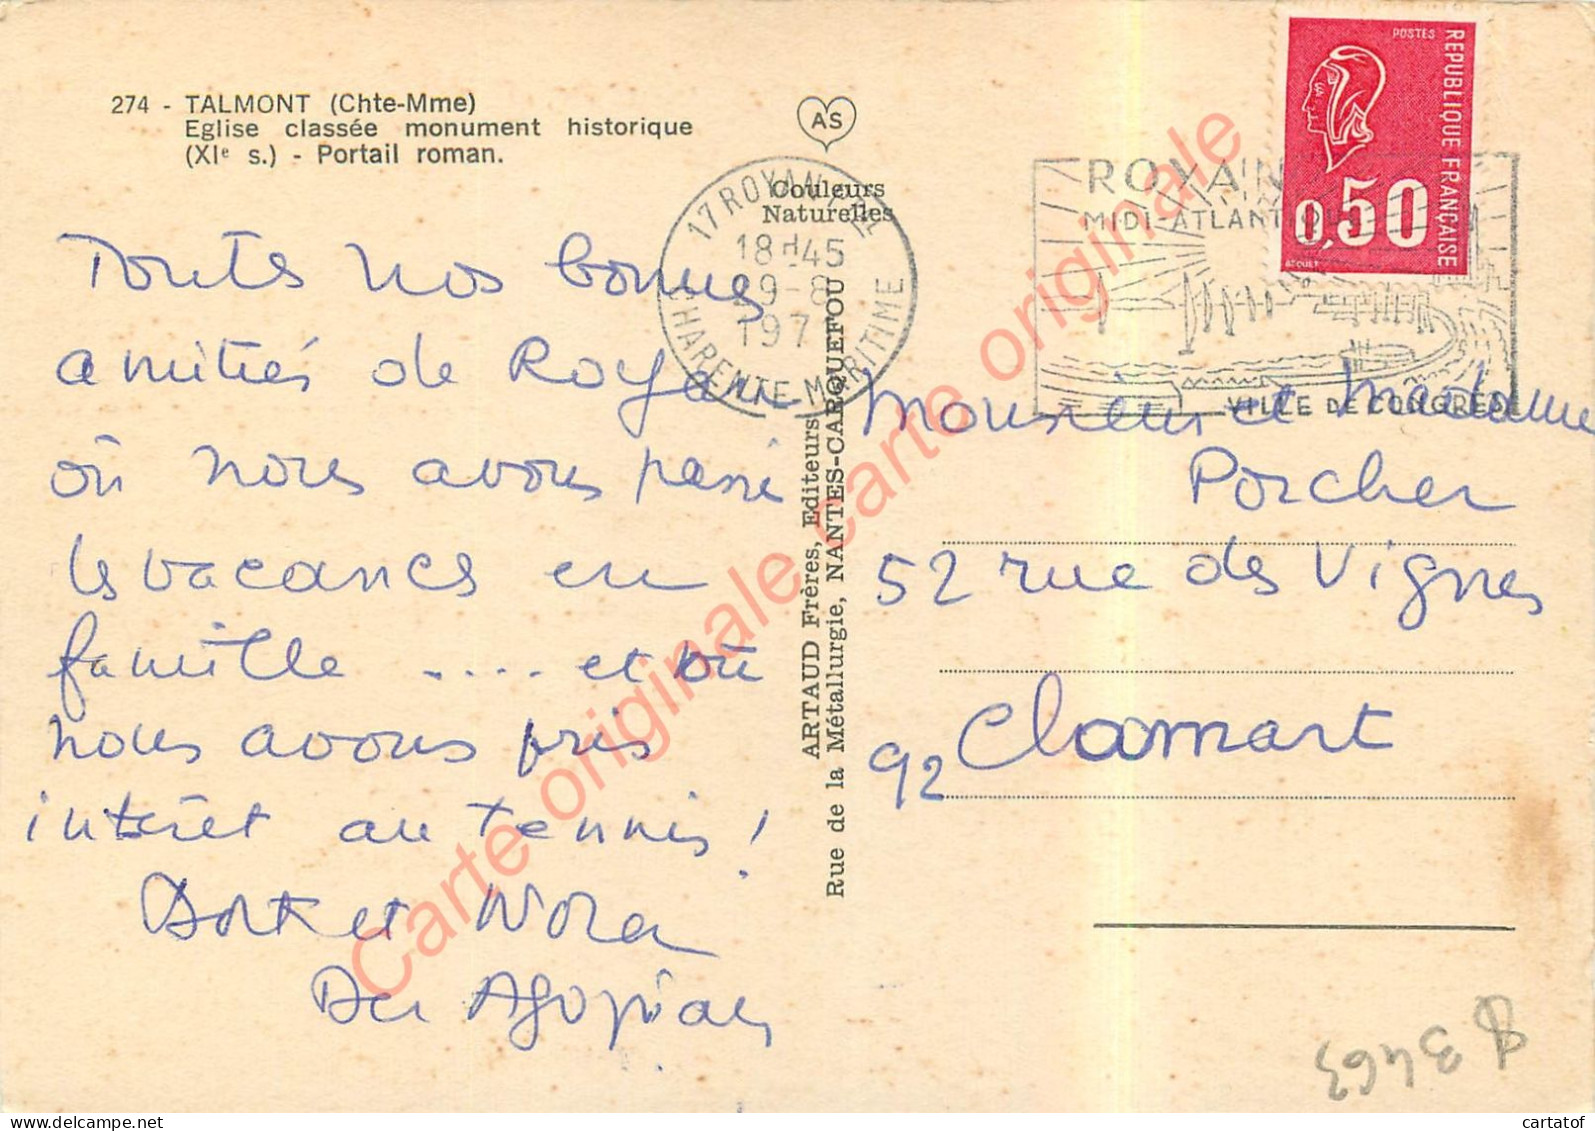 274 - TALMONT (Chte-Mme)
Eglise classée monument historique
(XIe s.) - Portail roman.
AS
Couleurs
Naturelles
17 ROYAN
18H45
29-8
197
CHARENTE-MARITIME
ROYAN
MIDI-ATLANT
VILLE DE CONGRES
POSTES
REPUBLIQUE FRANÇAISE
0,50
Toutes nos bonnes
amitiés de Royan
où nous avons passé
les vacances en
famille ..... et où
nous avons pris
intérêt au tennis !
et Nora
Der Agopian
ARTAUD Frères, Editeurs
Rue de la Métallurgie, NANTES-CARQUEFOU
Monsieur et Madame
Porcher
52 rue des Vignes
92 Clamart
3463
Carte originale carte originale